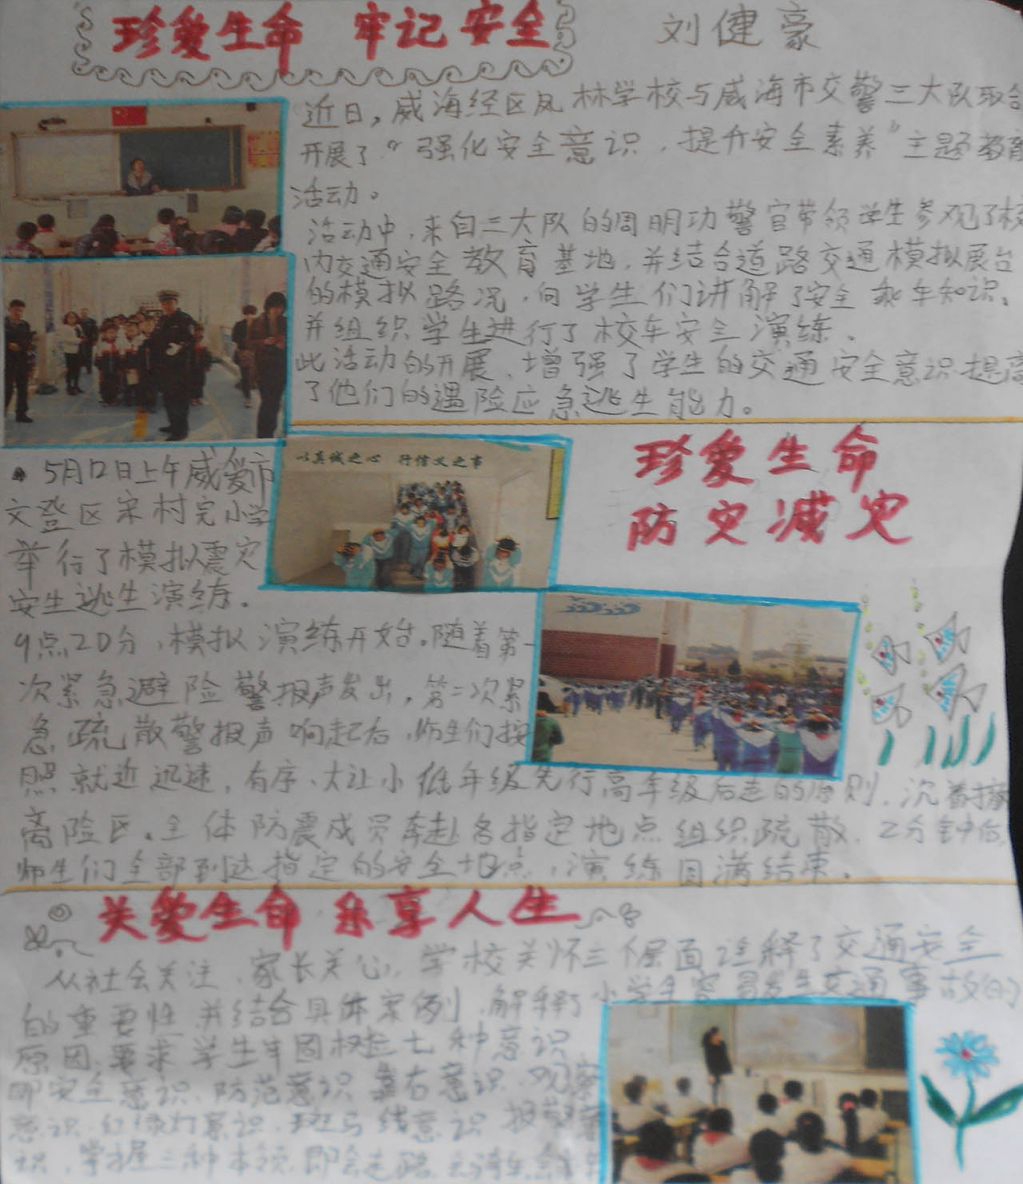 珍爱生命 牢记安全
刘健豪
近日,威海经区凤林学校与威海市交警三大队联合
开展了“强化安全意识,提升安全素养”主题教育
活动。
活动中,来自三大队的周明功警官带领学生参观了校
内交通安全教育基地,并结合道路交通模拟展台
的模拟路况,向学生们讲解了安全乘车知识、
并组织学生进行了校车安全演练、
此活动的开展,增强了学生的交通安全意识提高
了他们的遇险应急逃生能力。
以真诚之心 行信义之事
珍爱生命
防灾减灾
5月12日上午威爱市
文登区宋村完小学
举行了模拟震灾
安生逃生演练.
9点20分,模拟演练开始.随着第一
次紧急避险警报声发出,第二次紧
急疏散警报声响起后,师生们按
照就近迅速,有序、大让小低年级先行高年级后走的原则,沉着撤
离险区.全体防震成员奔赴各指定地点组织疏散.2分钟后,
师生们全部到达指定的安全地点,演练圆满结束.
关爱生命 乐享人生
从社会关注、家长关心、学校关怀三个层面注释了交通安全
的重要性,并结合具体案例,解释了小学生容易发生交通事故的
原因,要求学生牢固树立七种意识
即安全意识、防范意识、靠右意识、观察
意识、红绿灯意识、斑马线意识、报警意
识,掌握三种本领,即会走路